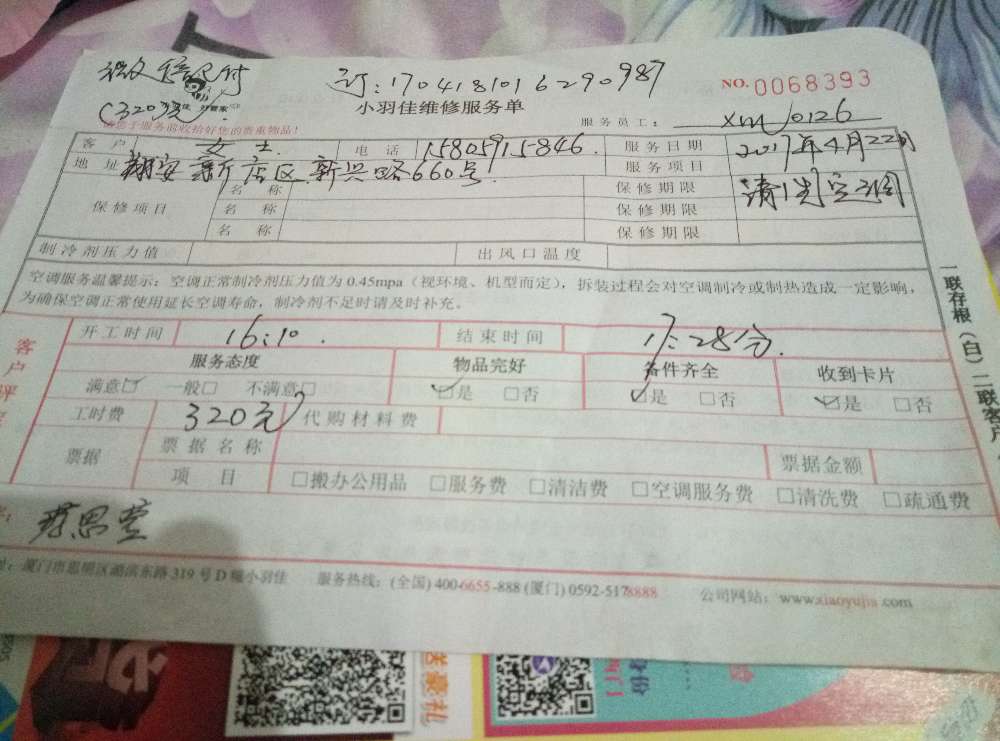 微信支付 订:1704181016290987 NO.0068393
(320元) 小羽佳维修服务单
请您于服务前收拾好您的贵重物品! 服务员工: xmj0126
客户 女士 电话 15805915846 服务日期 2017年4月22日
地址 翔安新店区新兴路660号 服务项目 清洗空调
保修项目 名称 保修期限
名称 保修期限
名称 保修期限
制冷剂压力值 出风口温度
空调服务温馨提示:空调正常制冷剂压力值为0.45mpa(视环境、机型而定),拆装过程会对空调制冷或制热造成一定影响,
为确保空调正常使用延长空调寿命,制冷剂不足时请及时补充。
开工时间 16:10 结束时间 17:28分
服务态度 物品完好 备件齐全 收到卡片
满意☑ 一般□ 不满意□ ☑是 □否 ☑是 □否 ☑是 □否
工时费 320元 代购材料费
票据 票据名称 票据金额
项目 □搬办公用品 □服务费 □清洁费 □空调服务费 □清洗费 □疏通费
厦门市思明区湖滨东路319号D幢小羽佳 服务热线:(全国)400-6655-888(厦门)0592-5178888 公司网站:www.xiaoyujia.com
一联存根(白)二联客户
客户评
送豪礼